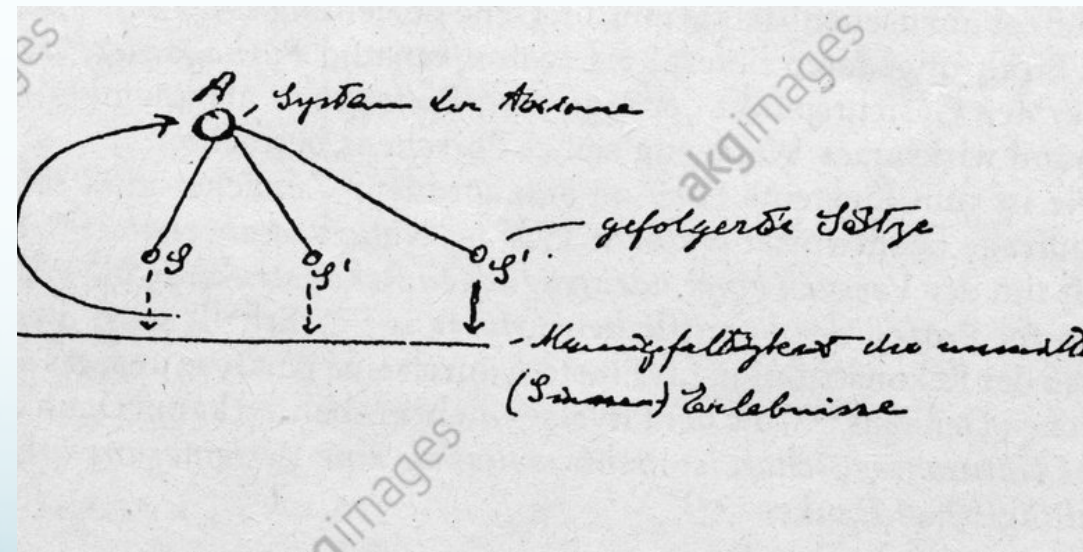 A
System der Axiome
S S' S'
gefolgerte Sätze
Mannigfaltigkeit der unmittel
(Sinnes) Erlebnisse
akgimages